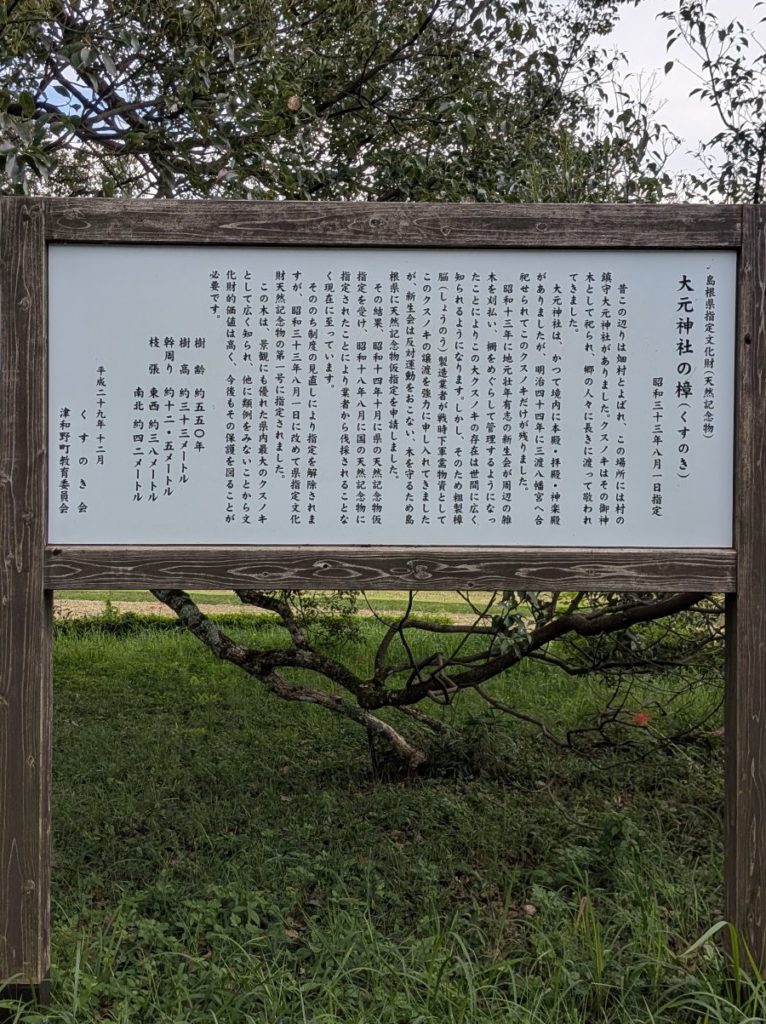 島根県指定文化財(天然記念物)
大元神社の樟(くすのき)
昭和三十三年八月一日指定
昔この辺りは畑村とよばれ、この場所には村の
鎮守大元神社がありました。クスノキはその御神
木として祀られ、郷の人々に長きに渡って敬われ
てきました。
大元神社は、かつて境内に本殿・拝殿・神楽殿
がありましたが、明治四十四年に三渡八幡宮へ合
祀せられてこのクスノキだけが残りました。
昭和十三年に地元壮年有志の新生会が周辺の雑
木を刈払い、柵をめぐらして管理するようになっ
たことによりこの大クスノキの存在は世間に広く
知られるようになります。しかし、そのため粗製樟
脳(しょうのう)製造業者が戦時下軍需物資として
このクスノキの譲渡を強力に申し入れてきました
が、新生会は反対運動をおこない、木を守るため島
根県に天然記念物仮指定を申請しました。
その結果、昭和十四年十月に県の天然記念物仮
指定を受け、昭和十八年八月に国の天然記念物に
指定されたことにより業者から伐採されることな
く現在に至っています。
そののち制度の見直しにより指定を解除されま
すが、昭和三十三年八月一日に改めて県指定文化
財天然記念物の第一号に指定されました。
この木は、景観にも優れた県内最大のクスノキ
として広く知られ、他に類例をみないことから文
化財的価値は高く、今後もその保護を図ることが
必要です。
樹 齢 約五五〇年
樹 高 約三十三メートル
幹周り 約十二・五メートル
枝 張 東西 約三八メートル
南北 約四二メートル
平成二十九年 十二月
くすのき会
津和野町教育委員会